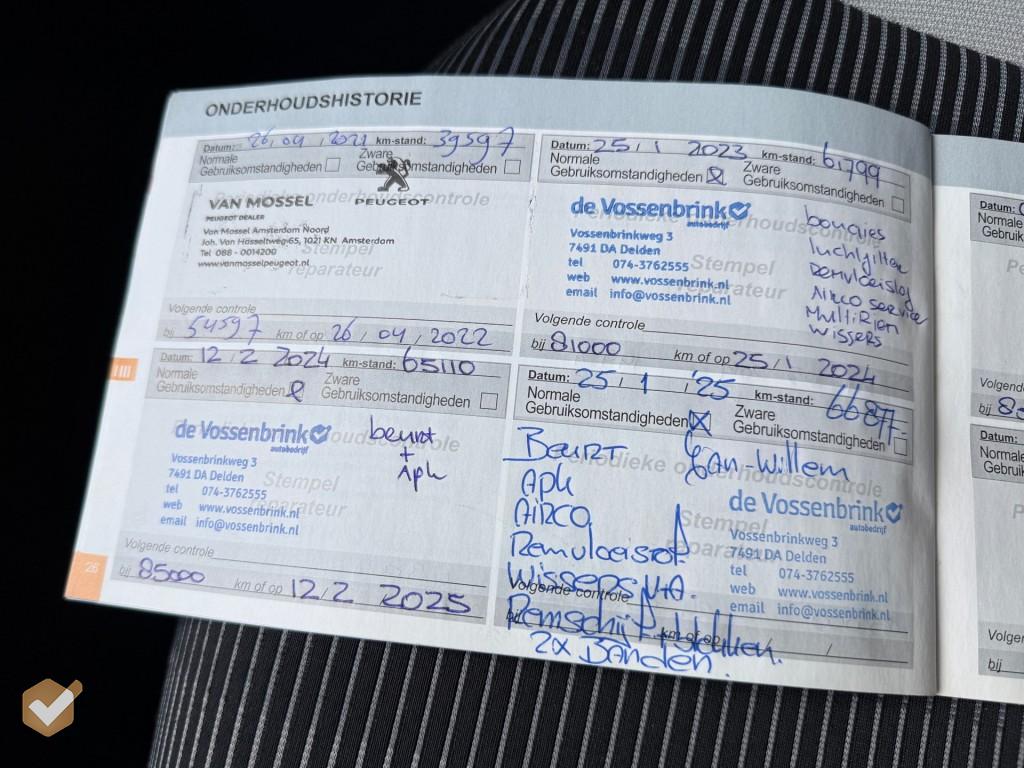 ONDERHOUDSHISTORIE
Datum: 26/04/2021 km-stand: 39597
Normale Gebruiksomstandigheden
Zware Gebruiksomstandigheden
Periodieke onderhoudscontrole
VAN MOSSEL
PEUGEOT DEALER
PEUGEOT
Van Mossel Amsterdam Noord
Joh. Van Hasseltweg 65, 1021 KN Amsterdam
Tel 088 - 0014200
www.vanmosselpeugeot.nl
Stempel
reparateur
Volgende controle
bij 54597 km of op 26/04/2022
Datum: 25/1 2023 km-stand: 61799
Normale Gebruiksomstandigheden
Zware Gebruiksomstandigheden
Periodieke onderhoudscontrole
de Vossenbrink
autobedrijf
Vossenbrinkweg 3
7491 DA Delden
tel 074-3762555
web www.vossenbrink.nl
email info@vossenbrink.nl
Stempel
reparateur
bougies
luchtfilter
Remvloeistof
Airco service
Multi Riem
wissers
Volgende controle
bij 81000 km of op 25/1 2024
Datum: 12/2 2024 km-stand: 65110
Normale
Gebruiksomstandigheden
Zware
Gebruiksomstandigheden
de Vossenbrink
autobedrijf
Vossenbrinkweg 3
7491 DA Delden
tel 074-3762555
web www.vossenbrink.nl
email info@vossenbrink.nl
Stempel
reparateur
beurt
+
Apk
Volgende controle
bij 85000 km of op 12/2 2025
26
Datum: 25/1 '25 km-stand: 66877
Normale
Gebruiksomstandigheden
Zware
Gebruiksomstandigheden
Periodieke onderhoudscontrole
BEURT
Jan-Willem
Apk
AIRCO
Remvloeistof
Wissers V+A.
Remschijf
2x BANDEN.
Stempel
reparateur
de Vossenbrink
autobedrijf
Vossenbrinkweg 3
7491 DA Delden
tel 074-3762555
web www.vossenbrink.nl
email info@vossenbrink.nl
Volgende controle
bij km of op /
Datum:
Normale
Volgende
bij
Datum:
Normale
Gebruik
Volgen
bij